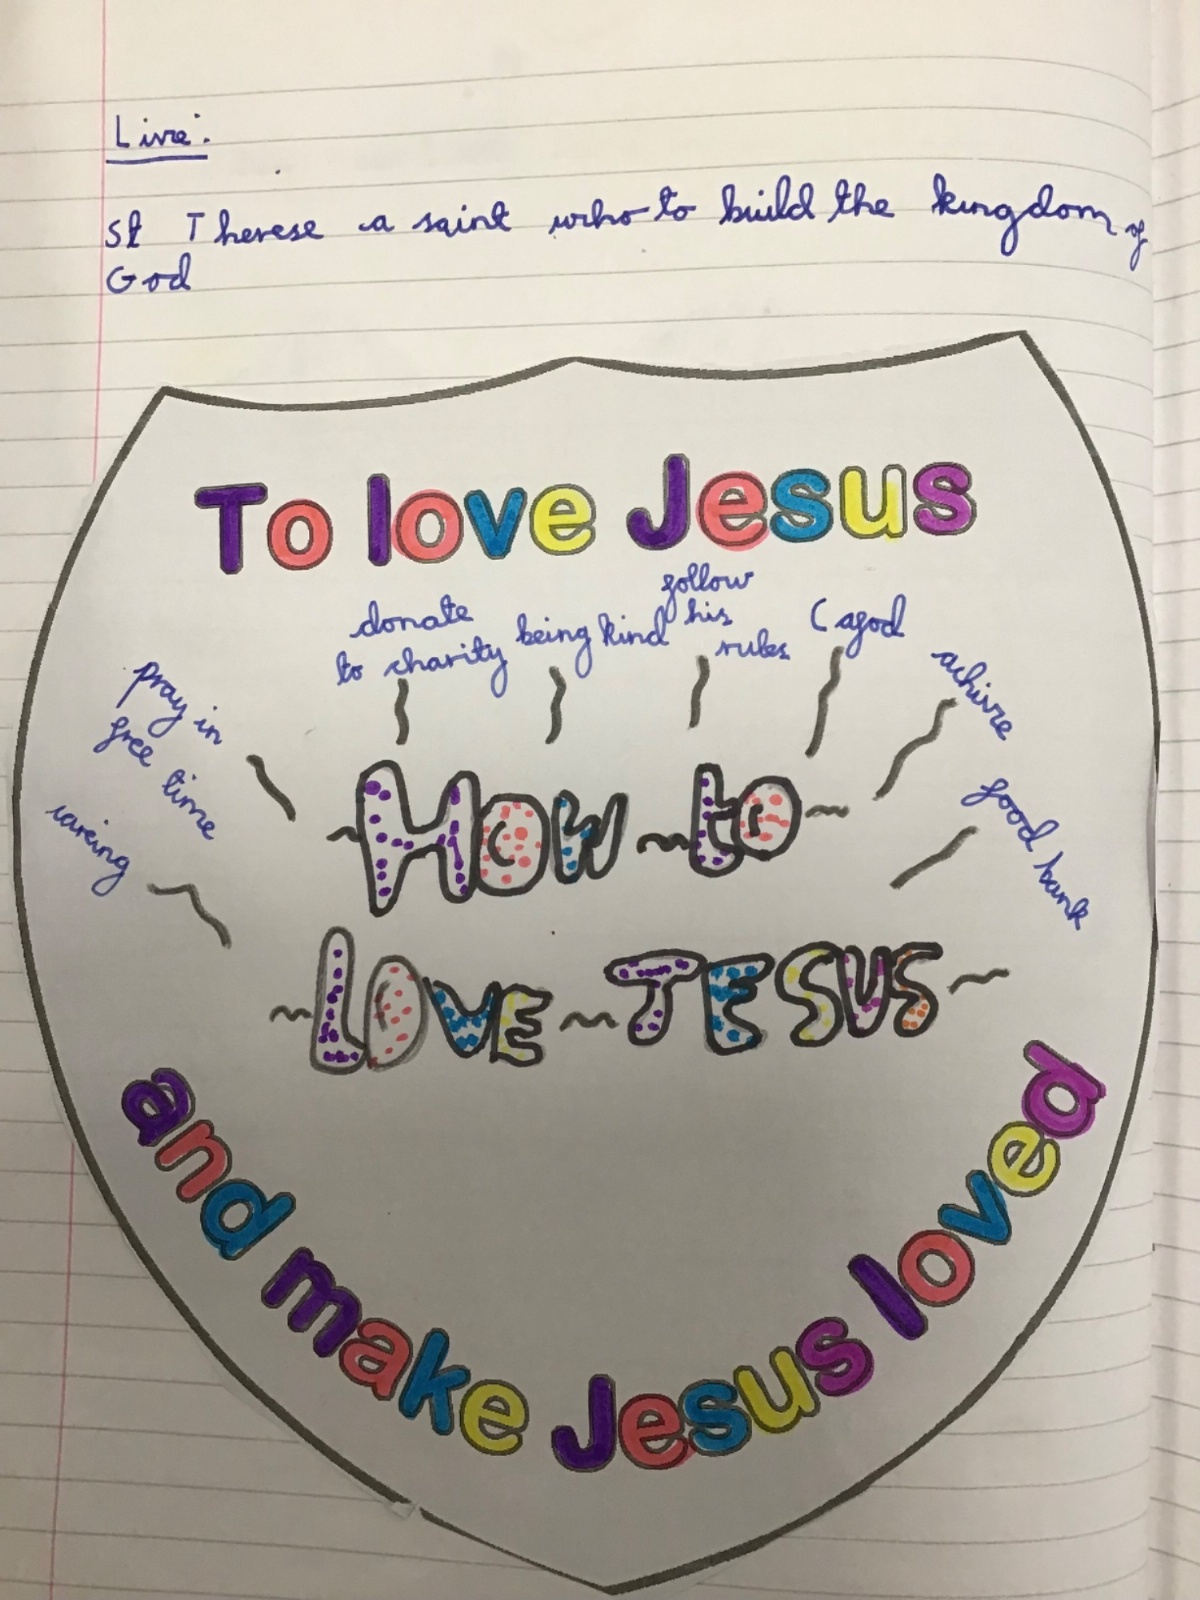 Live:
St Therese a saint who to build the kingdom of
God
To love Jesus
donate
to charity
being kind
follow
his
rules
agod
achive
food bank
pray in
free time
caring
HOW to
LOVE JESUS
and make Jesus loved